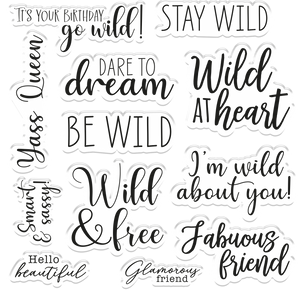 IT'S YOUR BIRTHDAY
go wild!
STAY WILD
Yass Queen
DARE TO
dream
Wild
AT heart
BE WILD
Smart
& sassy!
Wild
& free
I'm wild
about you!
Fabuous
friend
Hello
beautiful
Glamorous
friend